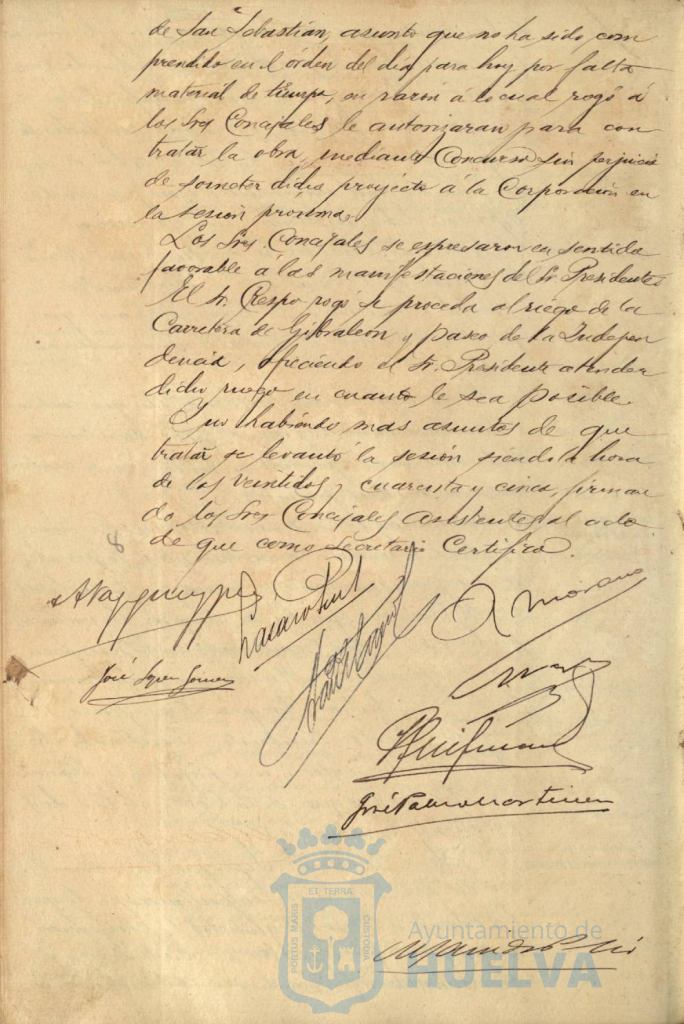 de San Sebastián, asunto que no ha sido com
prendido en el órden del dia para hoy por falta
material de tiempo, en razon á lo cual rogó á
los Sres Concejales le autorizaran para con
tratar la obra, mediante Concurso sin perjuicio
de someter dicho proyecto á la Corporación en
la sesión próxima.
Los Sres Concejales se expresaron en sentido
favorable á las manifestaciones del Sr. Presidente
El Sr. Crespo rogó se proceda al riego de la
Carretera de Gibraleon y paseo de la Indepen
dencia, ofreciendo el Sr. Presidente atender
dicho ruego en cuanto le sea posible.
Y no habiendo mas asuntos de que
tratar se levantó la sesión siendo la hora
de las veintidos y cuarenta y cinco, firman
do los Sres Concejales asistentes al acto
de que como Secretario Certifico.
8
Moreno
José Lopez Gomez
José Palma Martinez
PORTUS MARIS ET TERRÆ CUSTODIA
Ayuntamiento de
HUELVA